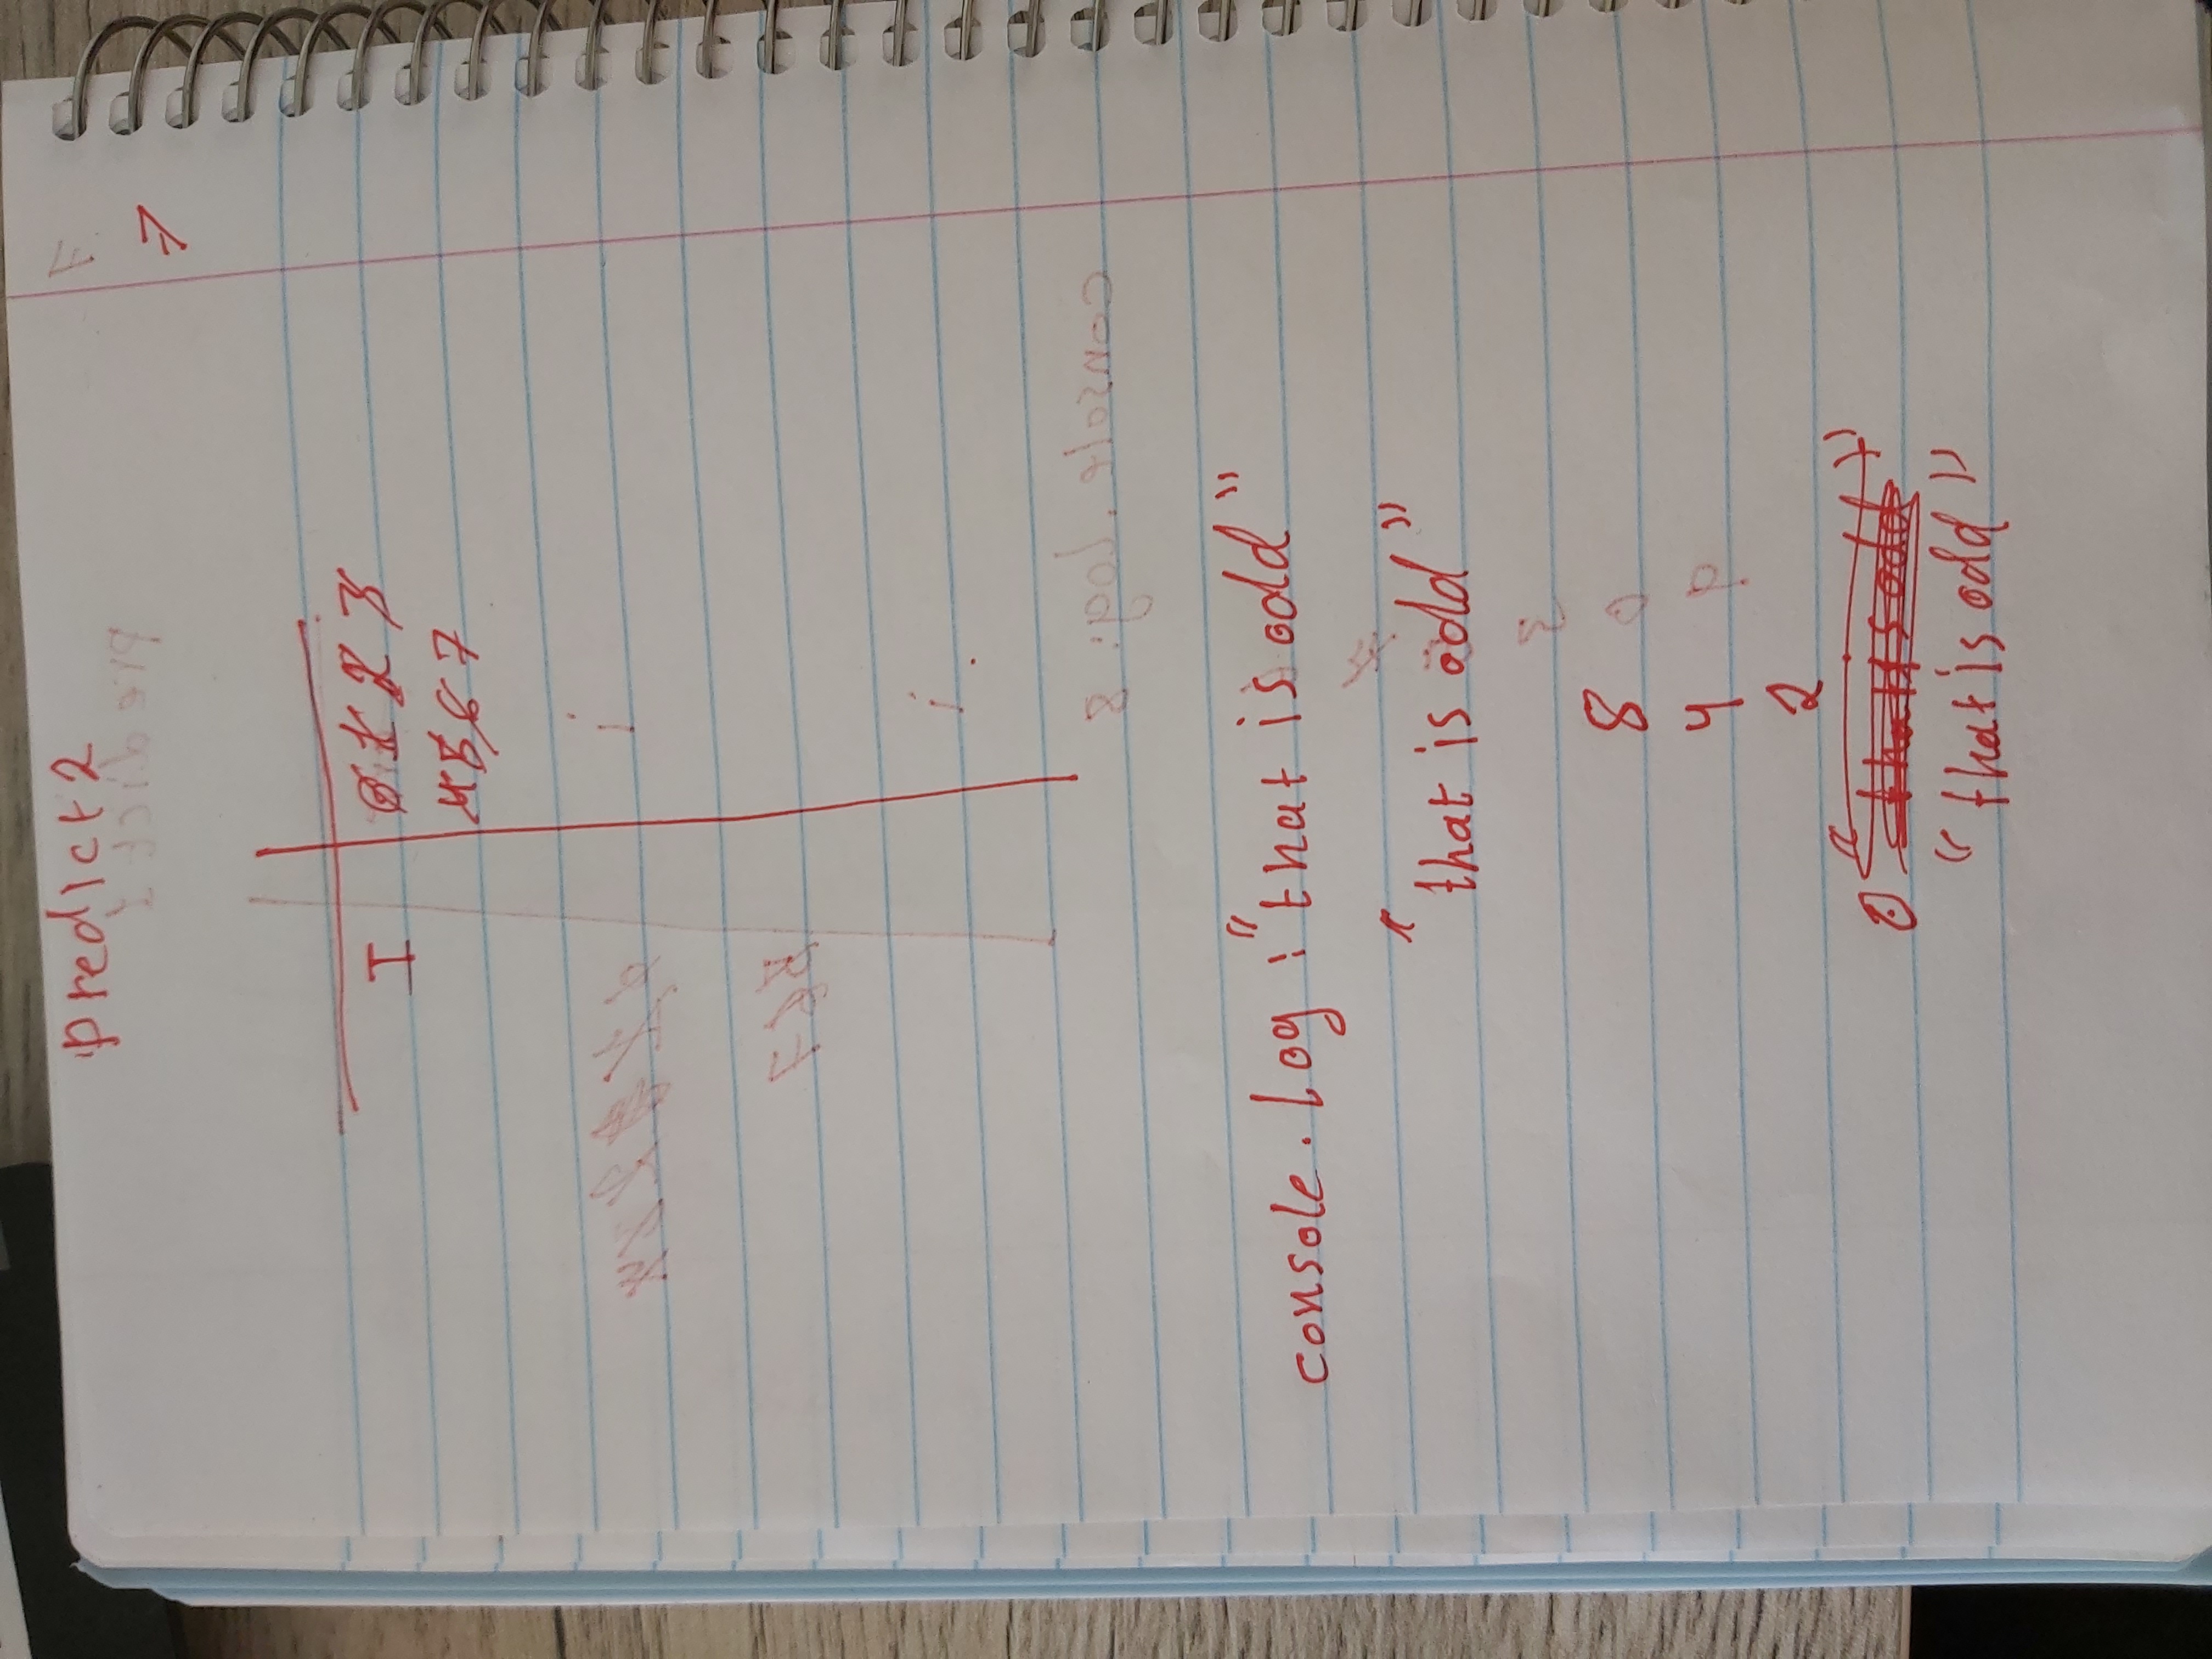 predict 2
7
I 0 1 2 3
4 5 6 7
i
i
console.log : "that is odd"
"that is odd"
8
4
2
0 "that is odd"
"that is odd"